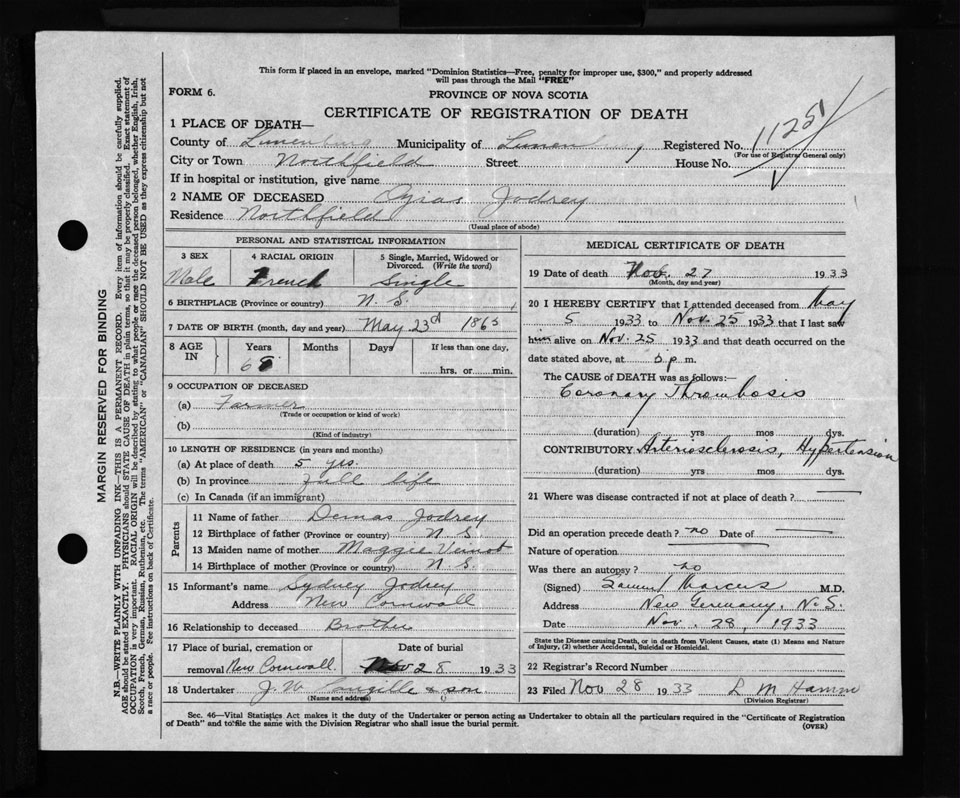 This form if placed in an envelope, marked "Dominion Statistics—Free, penalty for improper use, $300," and properly addressed
will pass through the Mail "FREE"
FORM 6.
PROVINCE OF NOVA SCOTIA
CERTIFICATE OF REGISTRATION OF DEATH
11251
1 PLACE OF DEATH—
County of Lunenburg Municipality of Lunenburg Registered No.
(For use of Registrar General only)
City or Town Northfield Street House No.
If in hospital or institution, give name
2 NAME OF DECEASED Ozias Jodrey
Residence Northfield
(Usual place of abode)
PERSONAL AND STATISTICAL INFORMATION
3 SEX 4 RACIAL ORIGIN 5 Single, Married, Widowed or Divorced. (Write the word)
Male French Single
6 BIRTHPLACE (Province or country) N. S.
7 DATE OF BIRTH (month, day and year) May 23d 1865
8 AGE IN Years Months Days If less than one day,
68 hrs. or min.
9 OCCUPATION OF DECEASED
(a) Farmer
(Trade or occupation or kind of work)
(b)
(Kind of industry)
10 LENGTH OF RESIDENCE (in years and months)
(a) At place of death 5 yrs.
(b) In province full life
(c) In Canada (if an immigrant)
Parents
11 Name of father Demas Jodrey
12 Birthplace of father (Province or country) N S.
13 Maiden name of mother Maggie Veinot
14 Birthplace of mother (Province or country) N S.
15 Informant's name Sydney Jodrey
Address New Cornwall
16 Relationship to deceased Brother
17 Place of burial, cremation or removal Date of burial
New Cornwall. Nov 28 1933
18 Undertaker J. W. & son
(Name and address)
MEDICAL CERTIFICATE OF DEATH
19 Date of death Nov. 27 1933
(Month, day and year)
20 I HEREBY CERTIFY that I attended deceased from May
5 1933 to Nov. 25 1933 that I last saw
him alive on Nov. 25 1933 and that death occurred on the
date stated above, at p. m.
The CAUSE of DEATH was as follows:—
Coronary Thrombosis
(duration) yrs mos dys.
CONTRIBUTORY Arteriosclerosis, Hypertension
(duration) yrs mos dys.
21 Where was disease contracted if not at place of death?
Did an operation precede death? no Date of
Nature of operation
Was there an autopsy? no
(Signed) Samuel Marcus M.D.
Address New Germany, N. S.
Date Nov. 28, 1933
State the Disease causing Death, or in death from Violent Causes, state (1) Means and Nature
of Injury, (2) whether Accidental, Suicidal or Homicidal.
22 Registrar's Record Number
23 Filed Nov 28 1933 L M Hamm
(Division Registrar)
Sec. 46—Vital Statistics Act makes it the duty of the Undertaker or person acting as Undertaker to obtain all the particulars required in the "Certificate of Registration
of Death" and to file the same with the Division Registrar who shall issue the burial permit.
(OVER)
MARGIN RESERVED FOR BINDING
N.B.—WRITE PLAINLY WITH UNFADING INK—THIS IS A PERMANENT RECORD. Every item of information should be carefully supplied.
AGE should be stated EXACTLY. PHYSICIANS should STATE CAUSE OF DEATH in plain terms, so that it may be properly classified. Exact statement of
OCCUPATION is very important. RACIAL ORIGIN will be described by stating to what people or race the deceased person belonged, whether English, Irish,
Scotch, French, German, Russian, Ruthenian, etc. The terms "AMERICAN" or "CANADIAN" SHOULD NOT BE USED as they express citizenship but not
a race or people. See instructions on back of Certificate.